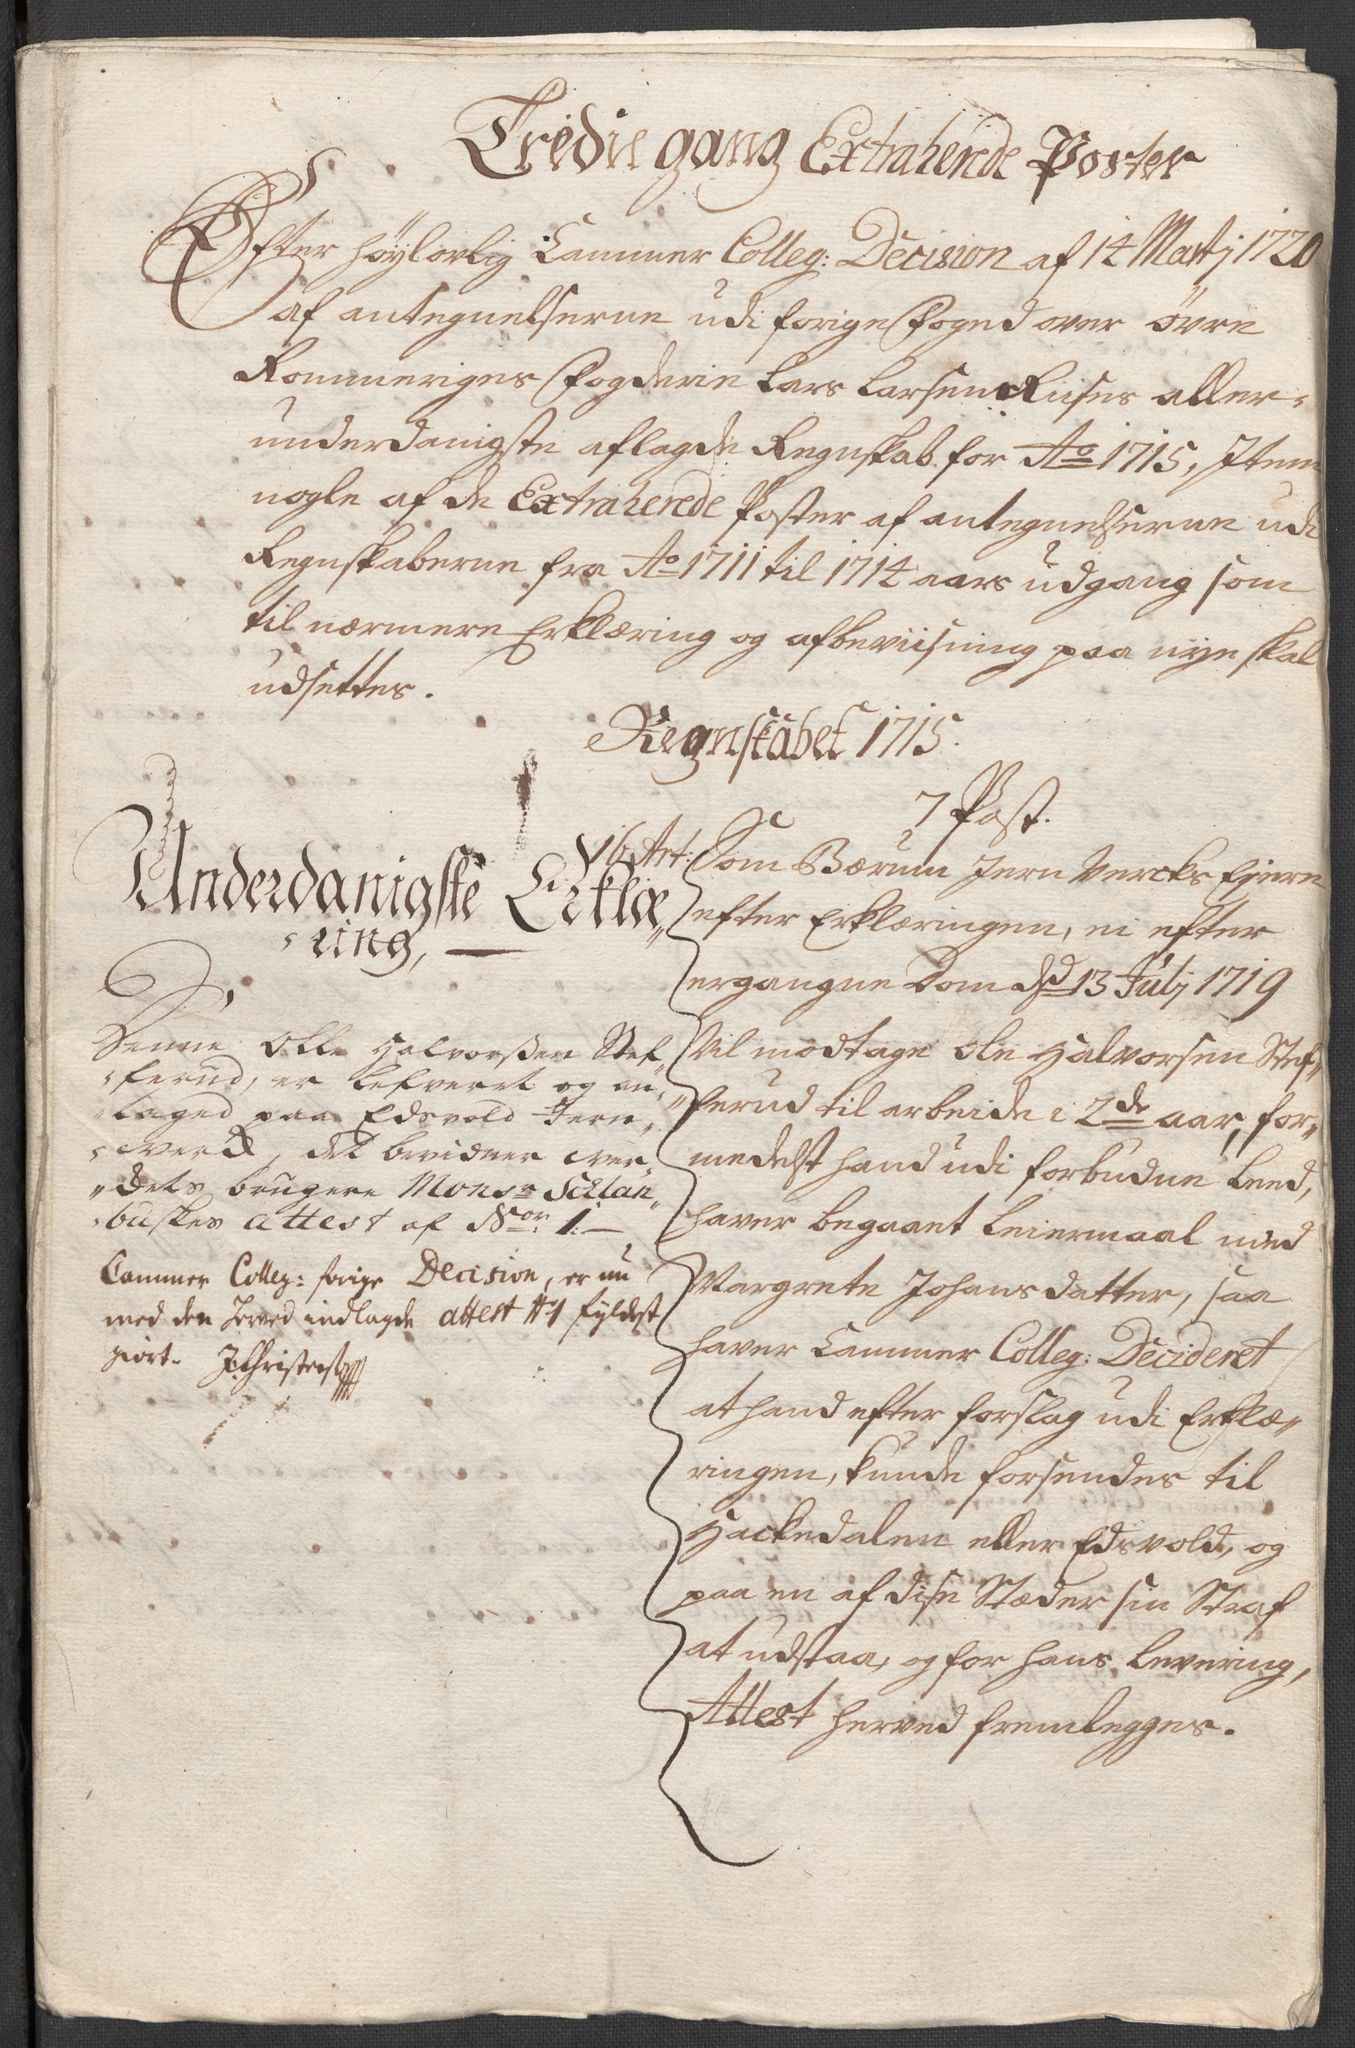 Tredie gang Extraherede Poster
Efter høylovlig Cammer Colleg: Decision af 14 Martj 1720
af antegnelserne udi forige Foged over øvre
Rommeriges Fogderie Lars Larsen Riises aller-
underdanigste aflagde Regnskab for Ao 1715, Item
nogle af de Extraherede Poster af antegnelserne udi
Regnskaberne fra Ao 1711 til 1714 aars udgang som
til nærmere Erklæring og afbeviisning paa nye skal
udsettes.
Regnskabet 1715.
7 Post.
16 Art:
Som Bærum Jern Vercks Ejere
efter Erklæringen, ei efter
ergangne Dom dsd 13 Julj 1719
vil modtage Ole Halvorsen Stef-
ferud til arbeide i 2de aar, for-
medelst hand udi forbudne Leed,
haver begaaet Leiermaal med
Margrete Johansdatter, saa
haver Cammer Colleg: Decideret
at hand efter forslag udi Erklæ-
ringen, kunde forsendes til
Hackedalen eller Edsvold, og
paa en af disse Stæder sin Straf
at udstaa, og for hans Levering,
Attest herved fremlegges.
Underdanigste Erklæ-
ring,
Denne Olle Halvorßen Stef-
ferud, er lefveret og an-
taged paa Edsvold Jern-
verck, det bevidner ver-
ckets brugere Monsr Schlan-
buskes attest af No: 1.
Cammer Colleg: forige Decision, er nu
med den herved indlagde attest No 1 fyldest
giort. J: Christens